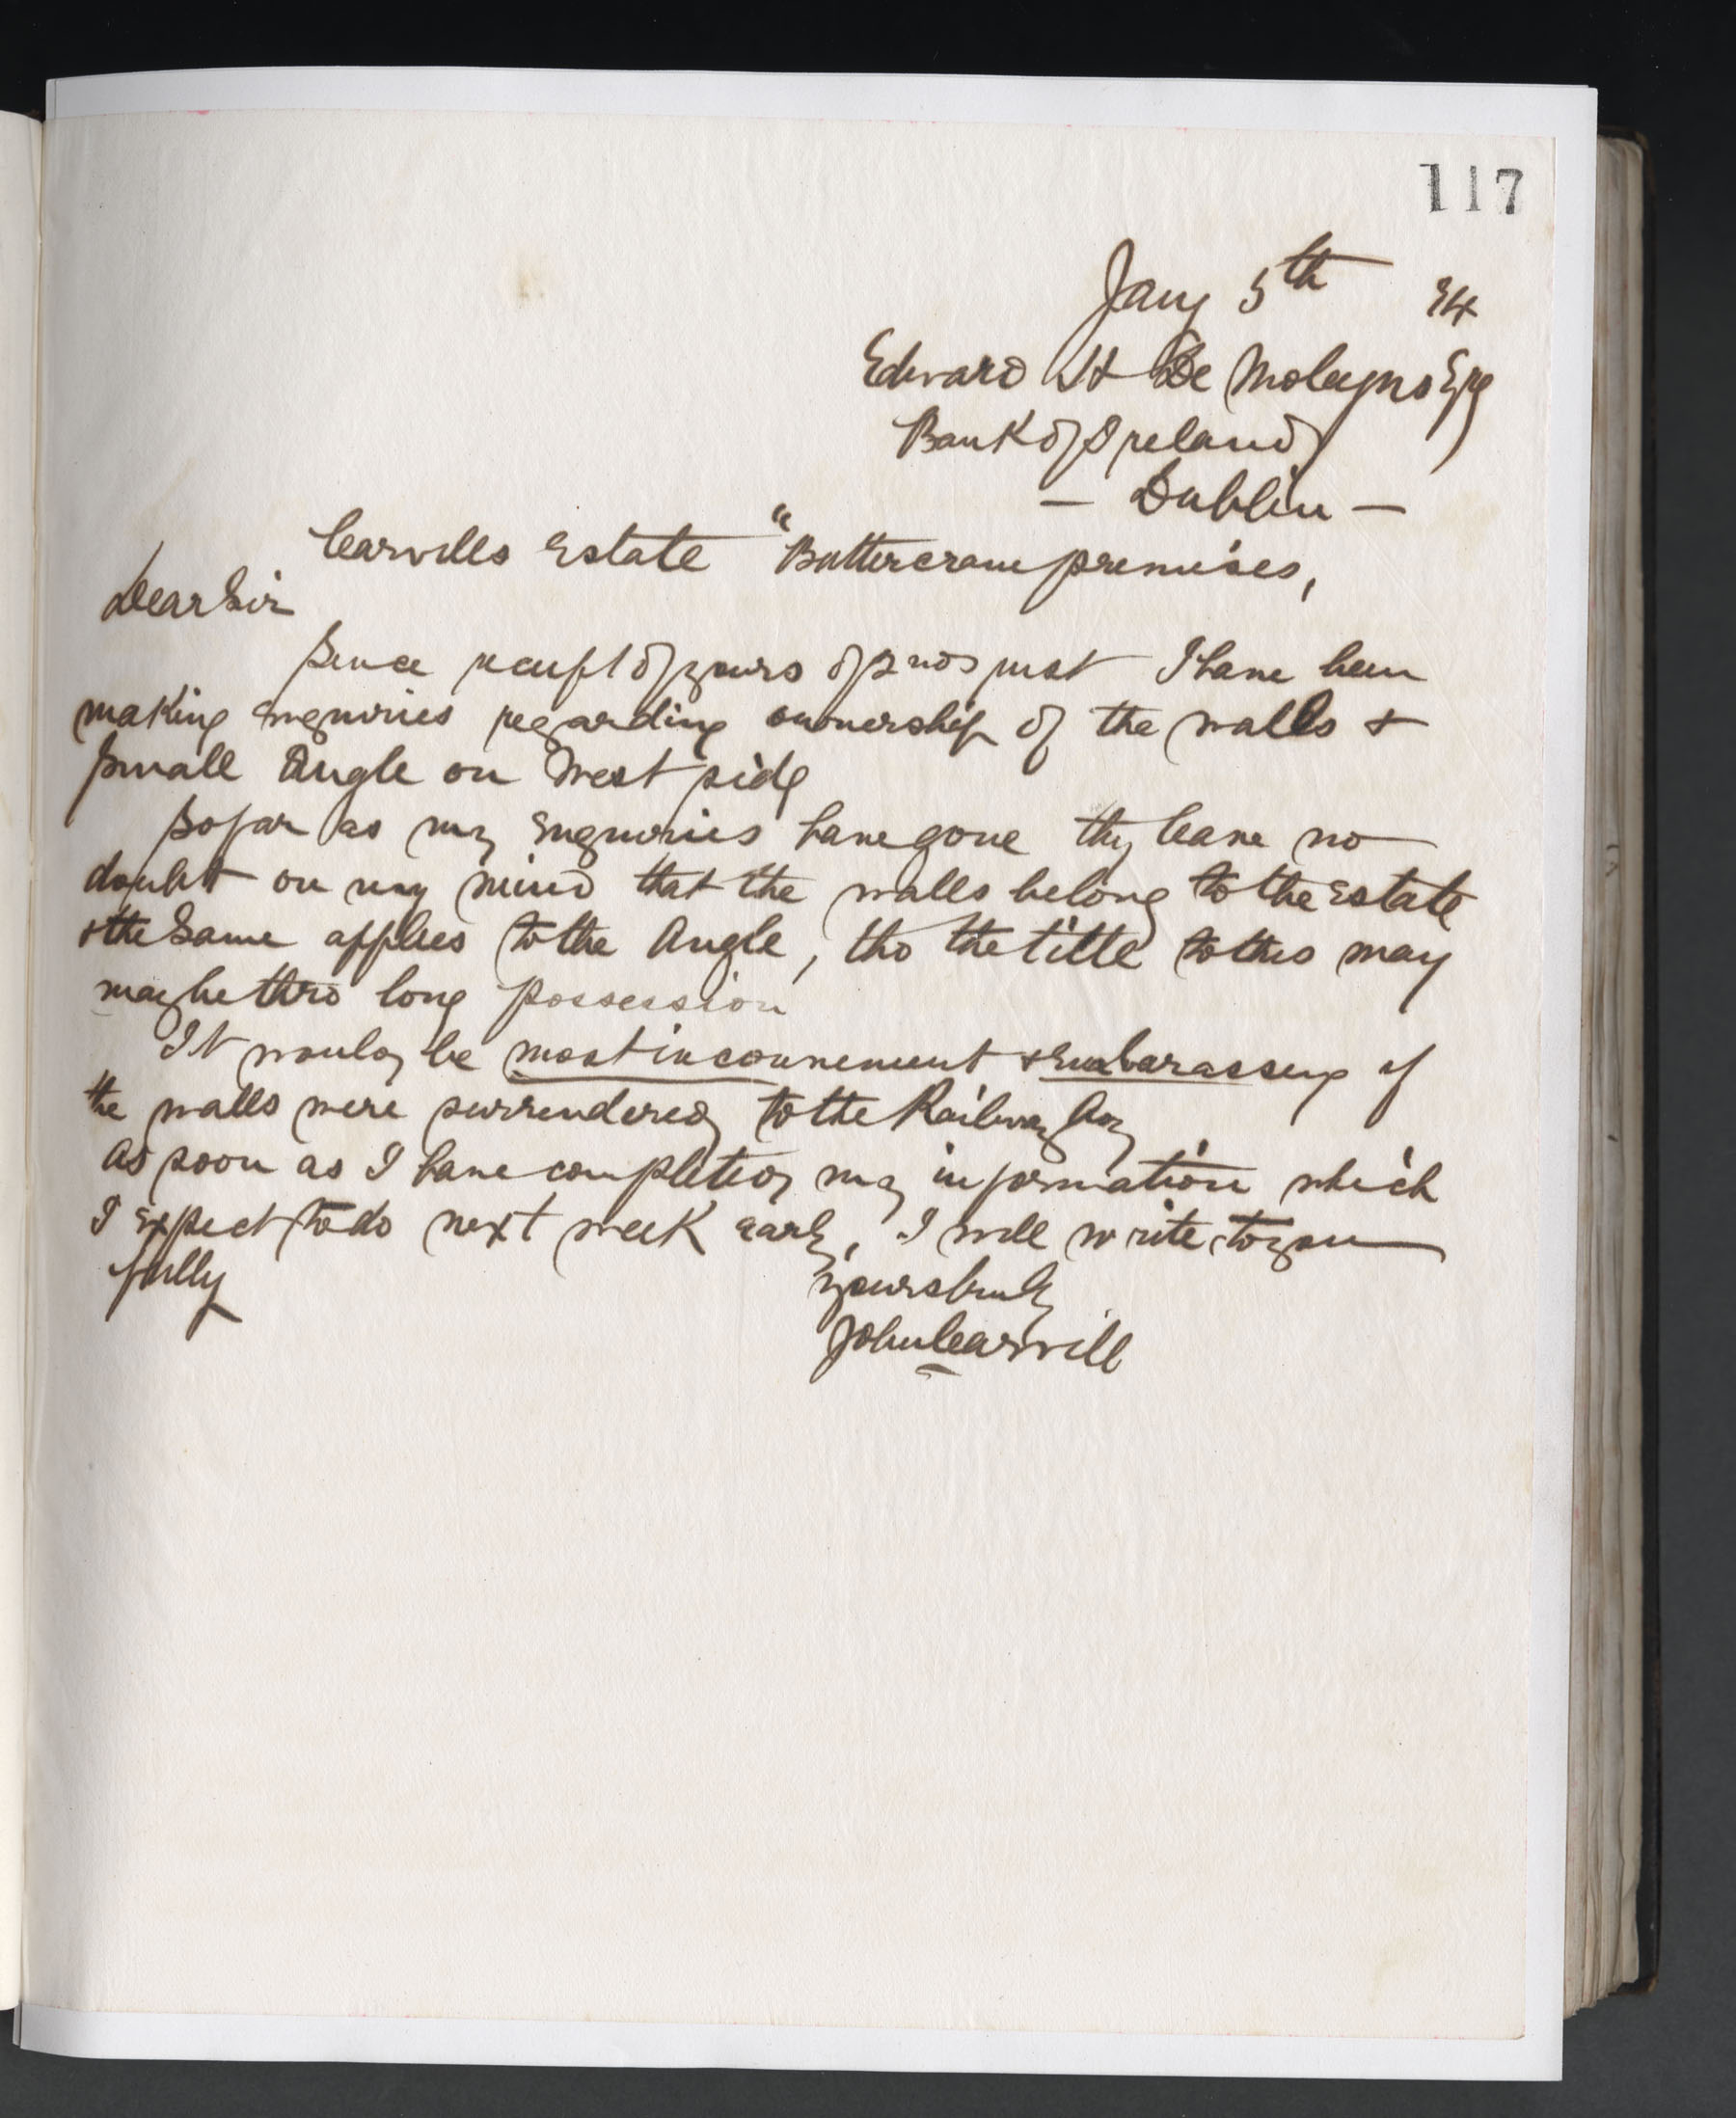 117
Jany 5th 94
Edward St De Moleyns Esq
Bank of Ireland
— Dublin —
Carvills Estate "Buttercrane premises,
Dear Sir
Since receipt of yours of 2nd inst I have been
making enquiries regarding ownership of the walls &
small Angle on West side
So far as my enquiries have gone they leave no
doubt on my mind that the walls belong to the Estate
& the Same applies to the Angle, tho the title to this may
may be thro long possession
It would be most inconvenient & Embarassing if
the walls were surrendered to the Railway Coy
As soon as I have completed my information which
I Expect to do next week early, I will write to you
fully
Yours truly
John Carvill